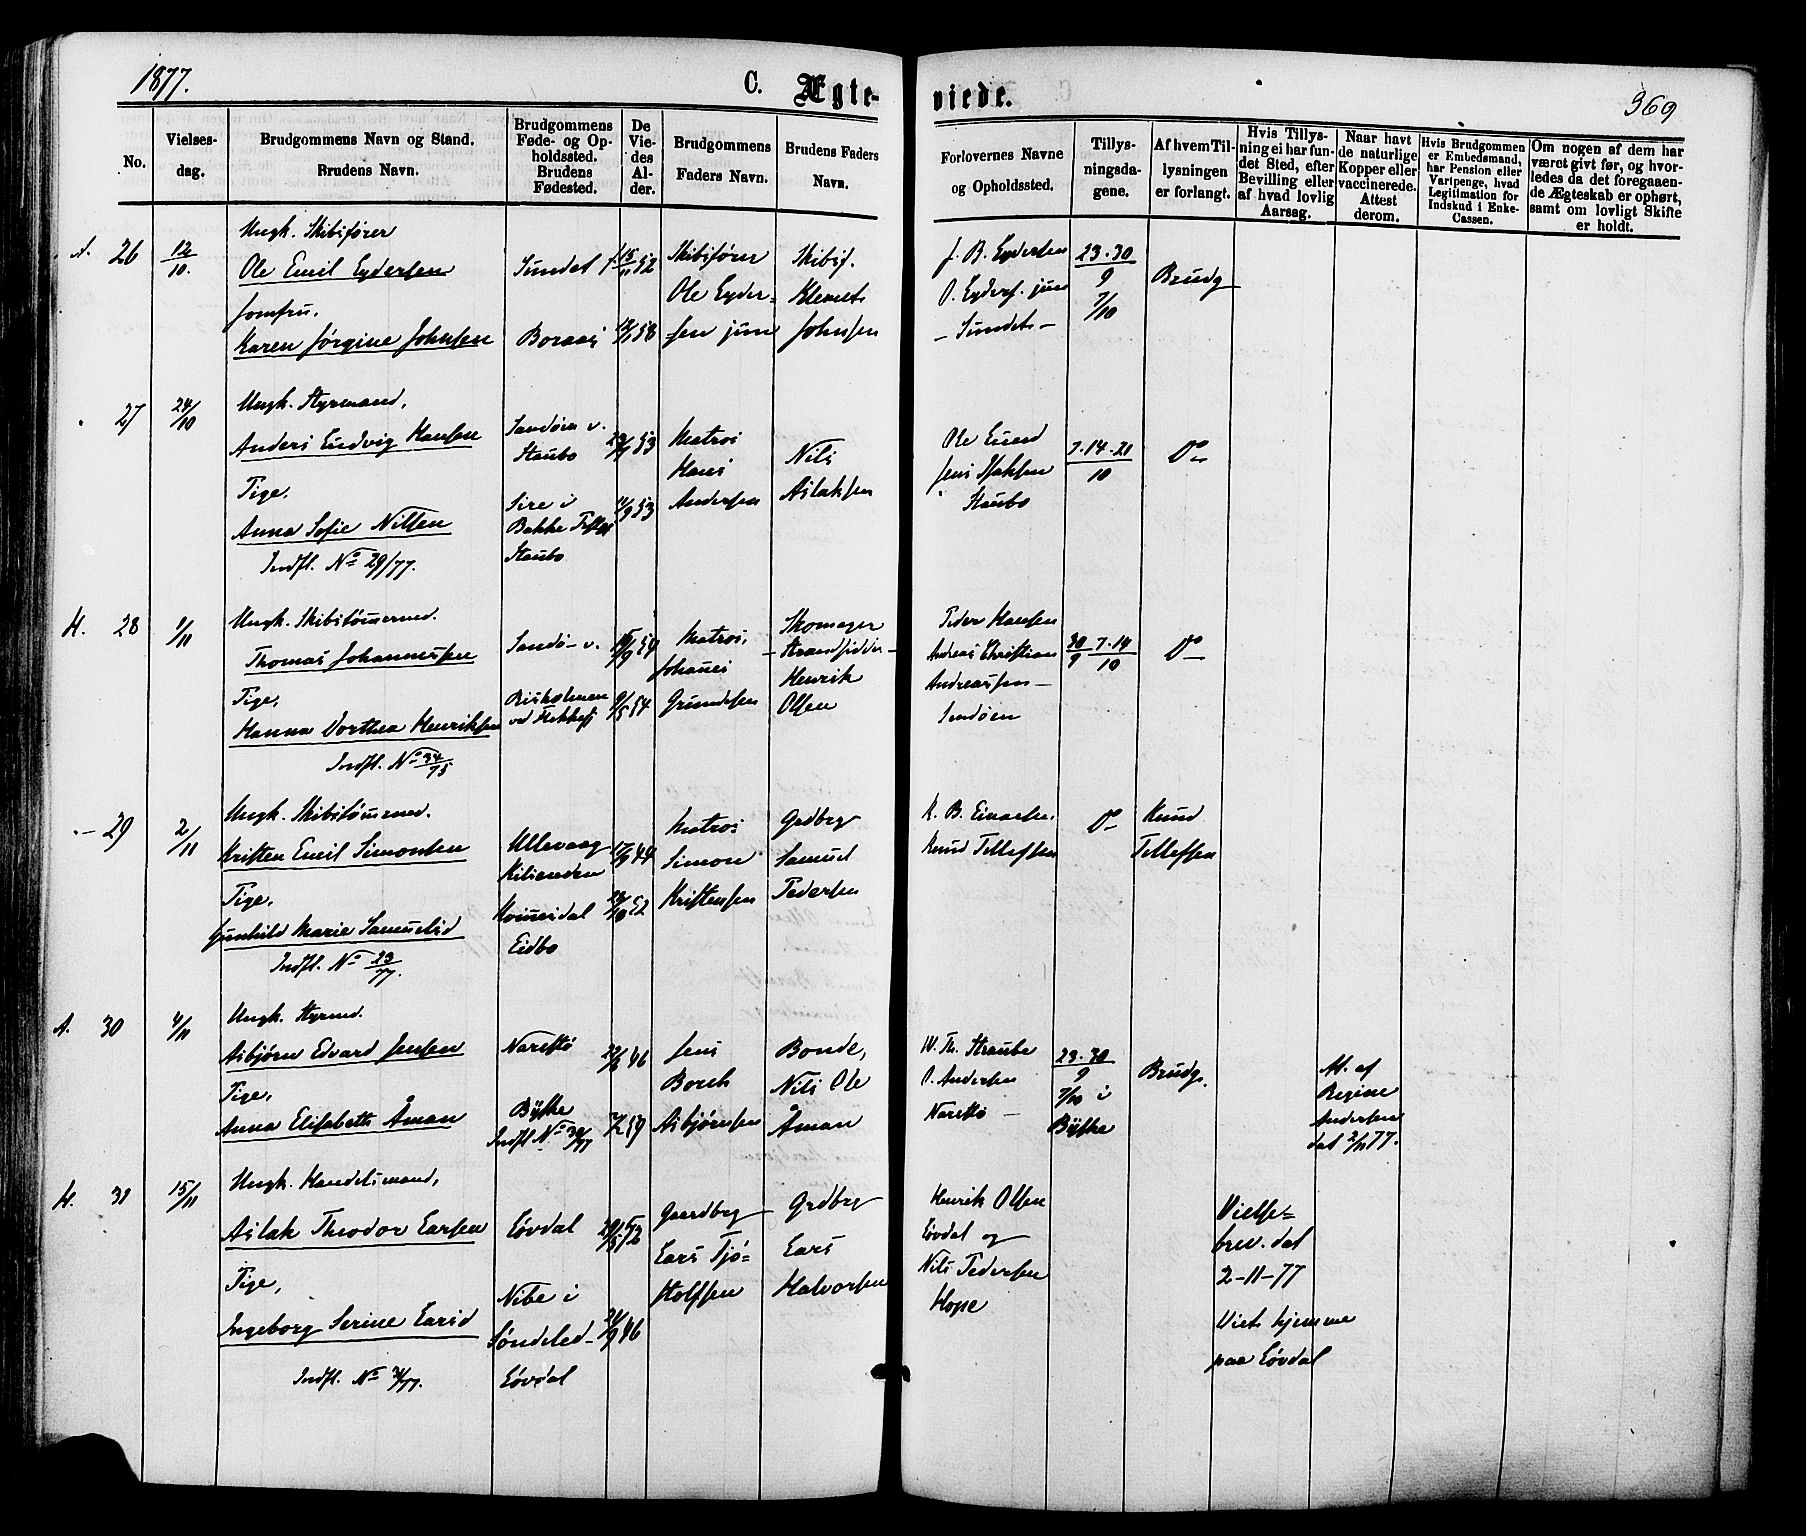 1877.
C. Ægte-
viede.
369
No.
Vielses-
dag.
Brudgommens Navn og Stand.
Brudens Navn.
Brudgommens
Føde- og Op-
holdssted.
Brudens
Fødested.
De
Vie-
des
Al-
der.
Brudgommens
Faders Navn.
Brudens Faders
Navn.
Forlovernes Navne
og Opholdssted.
Tillys-
ningsda-
gene.
Af hvem Til-
lysningen
er forlangt.
Hvis Tillys-
ning ei har fun-
det Sted, efter
Bevilling eller
af hvad lovlig
Aarsag.
Naar havt
de naturlige
Kopper eller
vaccinerede.
Attest
derom.
Hvis Brudgommen
er Embedsmand,
har Pension eller
Vartpenge, hvad
Legitimation for
Indskud i Enke-
Cassen.
Om nogen af dem har
været givt før, og hvor-
ledes da det foregaaen-
de Ægteskab er ophørt,
samt om lovligt Skifte
er holdt.
A. 26
12/10.
Ungk. Skibsfører
Ole Emil Eydersen
Jomfru.
Karen Jørgine Johnsen
Sundet
Boraas
15/11 52
58
Skibsfører
Ole Eyder-
sen jun
Skibsf.
Klemet
Johnsen
J. B. Eydersen
O. Eyders. jun
- Sundet -
23. 30
9
7/10
Brudg
27
24/10
Ungk. Styrmand,
Anders Ludvig Hansen
Pige,
Anna Sofie Nilsen
Indfl. No 29/77.
Sandøen v.
Staubo
Sire i
Bakke
Staubo
53
11/9 53
Matros
Hans
Andersen
Nils
Aslaksen
Ole Lund
Jens Isaksen
Staubo
7. 14. 21
10
Do
H. 28
1/11
Ungk. Skibstømmermd.
Thomas Johannessen
Pige,
Hanna Dorthea Henriksen
Indfl. No 34/75
Sandø- v.
54
9/5 54
Matros,
Johannes
Gundersen
Skomager
Strandsidder
Henrik
Olsen
Peder Hansen
Andreas Christian
Andreassen -
Sandøen
30/9 7. 14
10
Do
- 29
2/11
Ungk. Skibstømmermd.
Kristen Emil Simonsen
Pige,
Gunhild Marie Samuelsd
Indfl. No 23/77.
Ullevaag
Kilienden
Eidbo
17/9 44
52
Matros
Simon
Kristensen
Grdbrg
Samuel
Pedersen
K. B. Einarsen
Knud Tellefsen
Do
Knud
Tellefsen
A. 30
4/11
Ungk. Styrmd.
Asbjørn Edvard Jensen
Pige,
Anna Elisabeth Åman
Narestø
Byske
Indfl No 30/77
46
59
Jens
Borch
Asbjørnsen
Bonde,
Nils Ole
Åman
W. Th. Straube
O. Andersen
Narestø -
23. 30
9
7/10 i
Byske
Brudg.
At. af
Regine
Andersen
dat 2/11 77.
H. 31
15/11
Ungk. Handelsmand,
Aslak Theodor Larsen
Pige,
Ingeborg Serine Larsd
Indfl. No 31/77.
Løvdal
Nibe i
Søndeled-
Løvdal
52
46
Gaardbrg
Lars Tjø-
stolfsen
Grdbrg
Lars
Halvorsen
Henrik Olsen
Løvdal og
Nils Pedersen
Hope
Vielse-
brev. dat
2-11-77
Viet hjemme
paa Løvdal